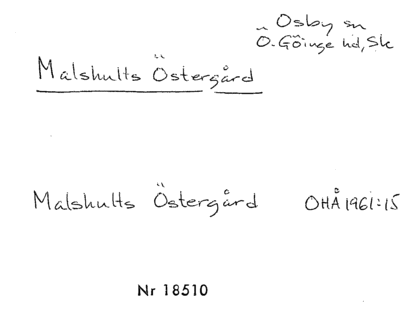 Osby sn
Ö. Göinge hd, Sk
Malshults Östergård
Malshults Östergård OHÅ 1961:15
Nr 18510